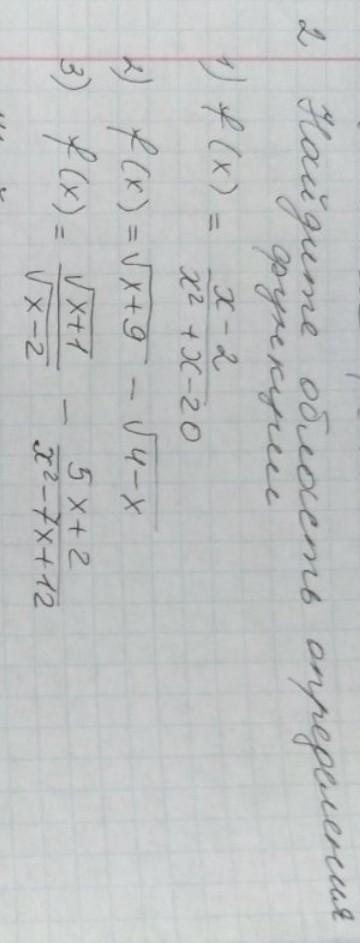 2 Найдите область определения
функции
1) f(x) = x-2 / x²+x-20
2) f(x) = √x+9 - √4-x
3) f(x) = √x+1 / √x-2 - 5x+2 / x²-7x+12